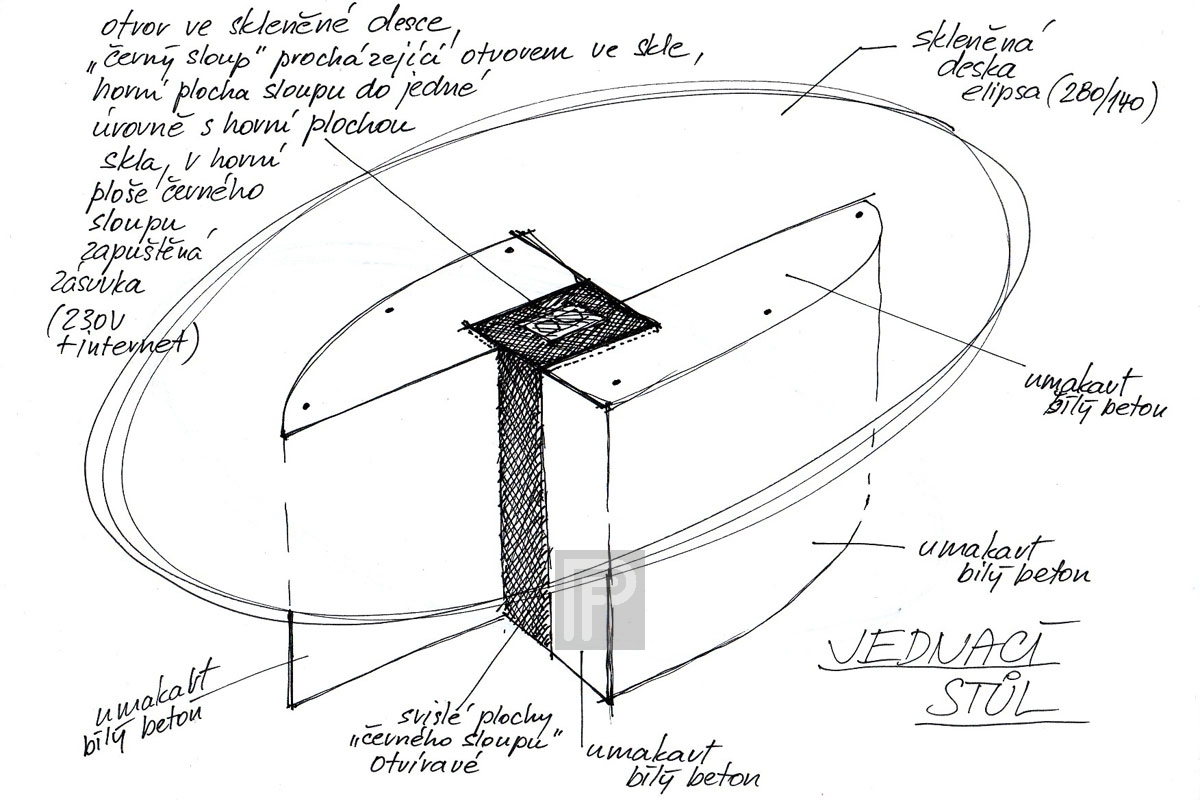 otvor ve skleněné desce,
„černý sloup" procházející otvorem ve skle,
horní plocha sloupu do jedné
úrovně s horní plochou
skla, v horní
ploše černého
sloupu
zapuštěná
zásuvka
(230V
+internet)
skleněná
deska
elipsa (280/140)
umakart
bílý beton
umakart
bílý beton
JEDNACÍ
STŮL
umakart
bílý beton
svislé plochy
„černého sloupu"
otvíravé
umakart
bílý beton